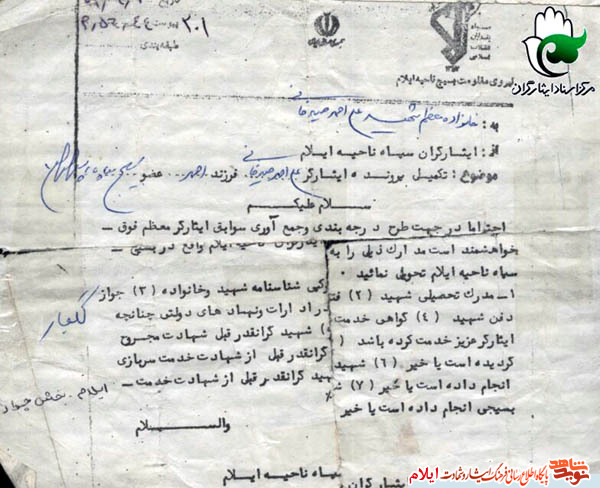 ۲۰۱
طبقه بندی
سپاه
پاسداران
انقلاب
اسلامی
مرکز اسناد ایثارگران
نیروی مقاومت بسیج ناحیه ایلام
به : خانواده معظم شهید علی احمد صیدخانی
از : ایثارگران سپاه ناحیه ایلام
موضوع : تکمیل پرونده ایثارگر علی احمد صیدخانی فرزند احمد ... عضو بسیج
سلام علیکم
احتراما در جهت طرح درجه بندی وجمع آوری سوابق ایثارگر معظم فوق ـ
خواهشمند است مدارک ذیل را به ایثارگران ناحیه ایلام واقع در
سپاه ناحیه ایلام تحویل نمائید ۰
۱ـ مدرک تحصیلی شهید (۲) شناسنامه شهید وخانواده (۳) جواز
دفن شهید (۴) گواهی خدمت در ادارات ونهاد های دولتی چنانچه
ایثارگر عزیز خدمت کرده باشد شهید گرانقدر قبل شهادت مجروح
گردیده است یا خیر (۶) شهید گرانقدر قبل از شهادت خدمت سربازی
انجام داده است یا خیر (۷) شهید گرانقدر قبل از شهادت خدمت ـ
بسیجی انجام داده است یا خیر
والسلام
گلغبار
ایلام . بخش چوار
سپاه ناحیه ایلام
ایثارگران
نوید شاهد
پایگاه اطلاع رسانی فرهنگ ایثار و شهادت ایلام